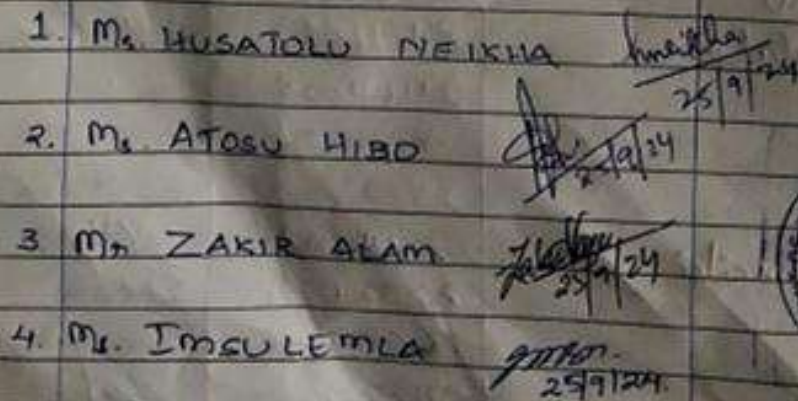 1. Ms. HUSATOLU NEIKHA hneikha 25/9/24
2. Ms ATOSU HIBO 25/9/24
3 Mr ZAKIR ALAM 25/9/24
4. Ms. IMSULEMLA 25/9/24.